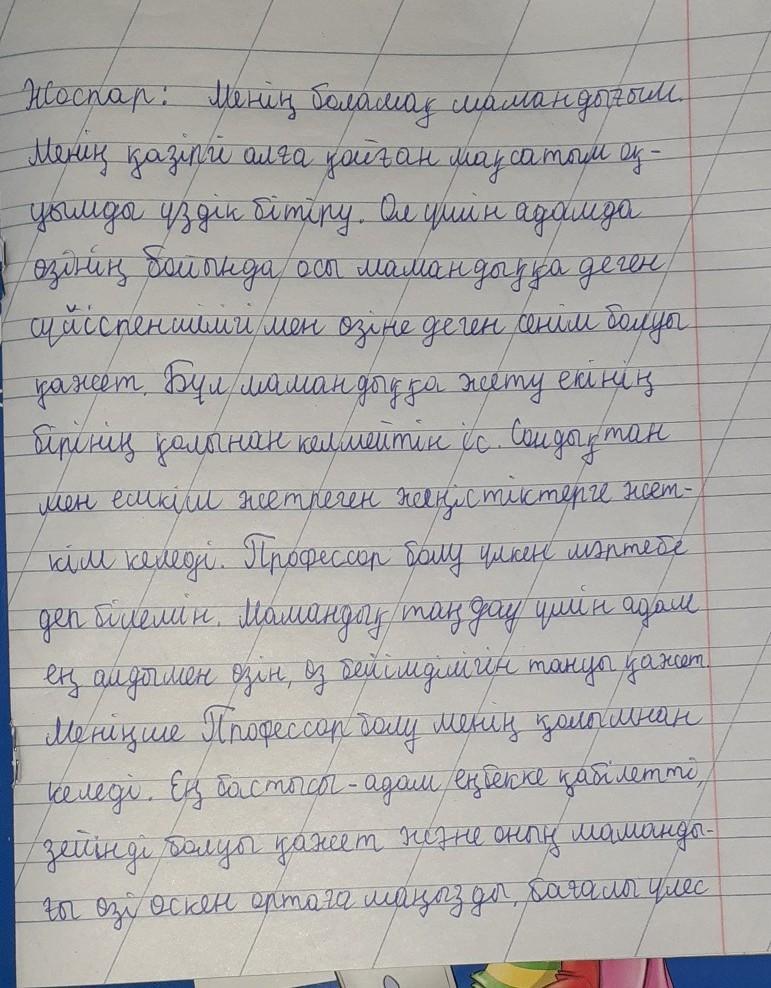 Жоспар: Менің болашақ мамандығым.
Менің қазіргі алға қойған мақсатым оқ-
уымды үздік бітіру. Ол үшін адамда
өзінің бойында осы мамандыққа деген
сүйіспеншілігі мен өзіне деген сенім болуы
қажет. Бұл мамандыққа жету екінің
бірінің қолынан келмейтін іс. Сондықтан
мен ешкім жетпеген жеңістіктерге жет-
кім келеді. Профессор болу үлкен мәртебе
деп білемін. Мамандық таңдау үшін адам
ең алдымен өзін, өз бейімділігін тануы қажет.
Меніңше Профессор болу менің қолымнан
келеді. Ең бастысы - адам еңбекке қабілетті,
зейінді болуы қажет және оның маманды-
ғы өзі өскен ортаға маңызды, бағалы үлес